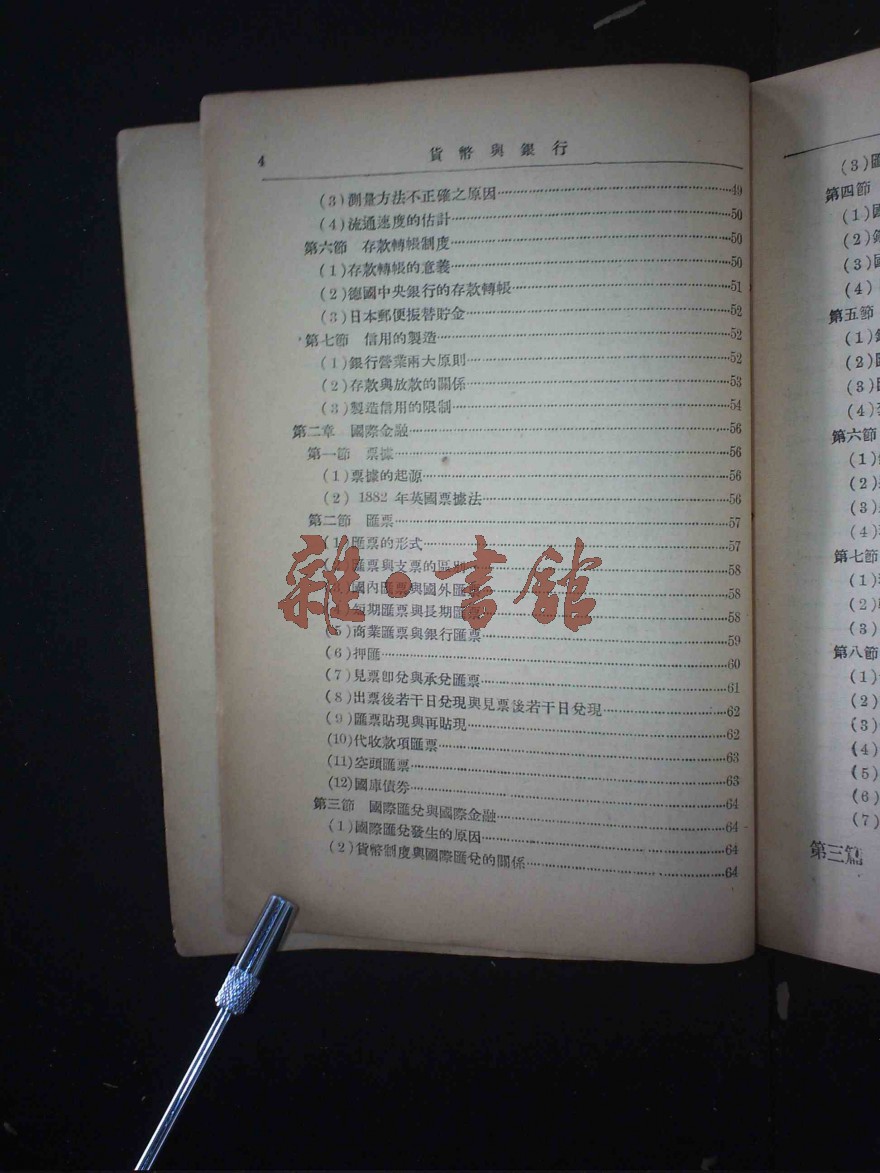 4
貨幣與銀行
(3)測量方法不正確之原因……49
(4)流通速度的估計……50
第六節 存款轉帳制度……50
(1)存款轉帳的意義……50
(2)德國中央銀行的存款轉帳……51
(3)日本郵便振替貯金……52
第七節 信用的製造……52
(1)銀行營業兩大原則……52
(2)存款與放款的關係……53
(3)製造信用的限制……54
第二章 國際金融……56
第一節 票據……56
(1)票據的起源……56
(2) 1882 年英國票據法……56
第二節 匯票……57
(1)匯票的形式……57
(2)匯票與支票的區別……58
(3)國內匯票與國外匯票……58
(4)短期匯票與長期匯票……58
(5)商業匯票與銀行匯票……59
(6)押匯……60
(7)見票卽兌與承兌匯票……61
(8)出票後若干日兌現與見票後若干日兌現……62
(9)匯票貼現與再貼現……62
(10)代收款項匯票……63
(11)空頭匯票……63
(12)國庫債券……64
第三節 國際匯兌與國際金融……64
(1)國際匯兌發生的原因……64
(2)貨幣制度與國際匯兌的關係……64
雜·書館
(3)匯
第四節
(1)國
(2)
(3)國
(4)
第五節
(1)
(2)匯
(3)
(4)
第六節
(1)
(2)
(3)
(4)
第七節
(1)
(2)
(3)
第八節
(1)
(2)
(3)
(4)
(5)
(6)
(7)
第三篇